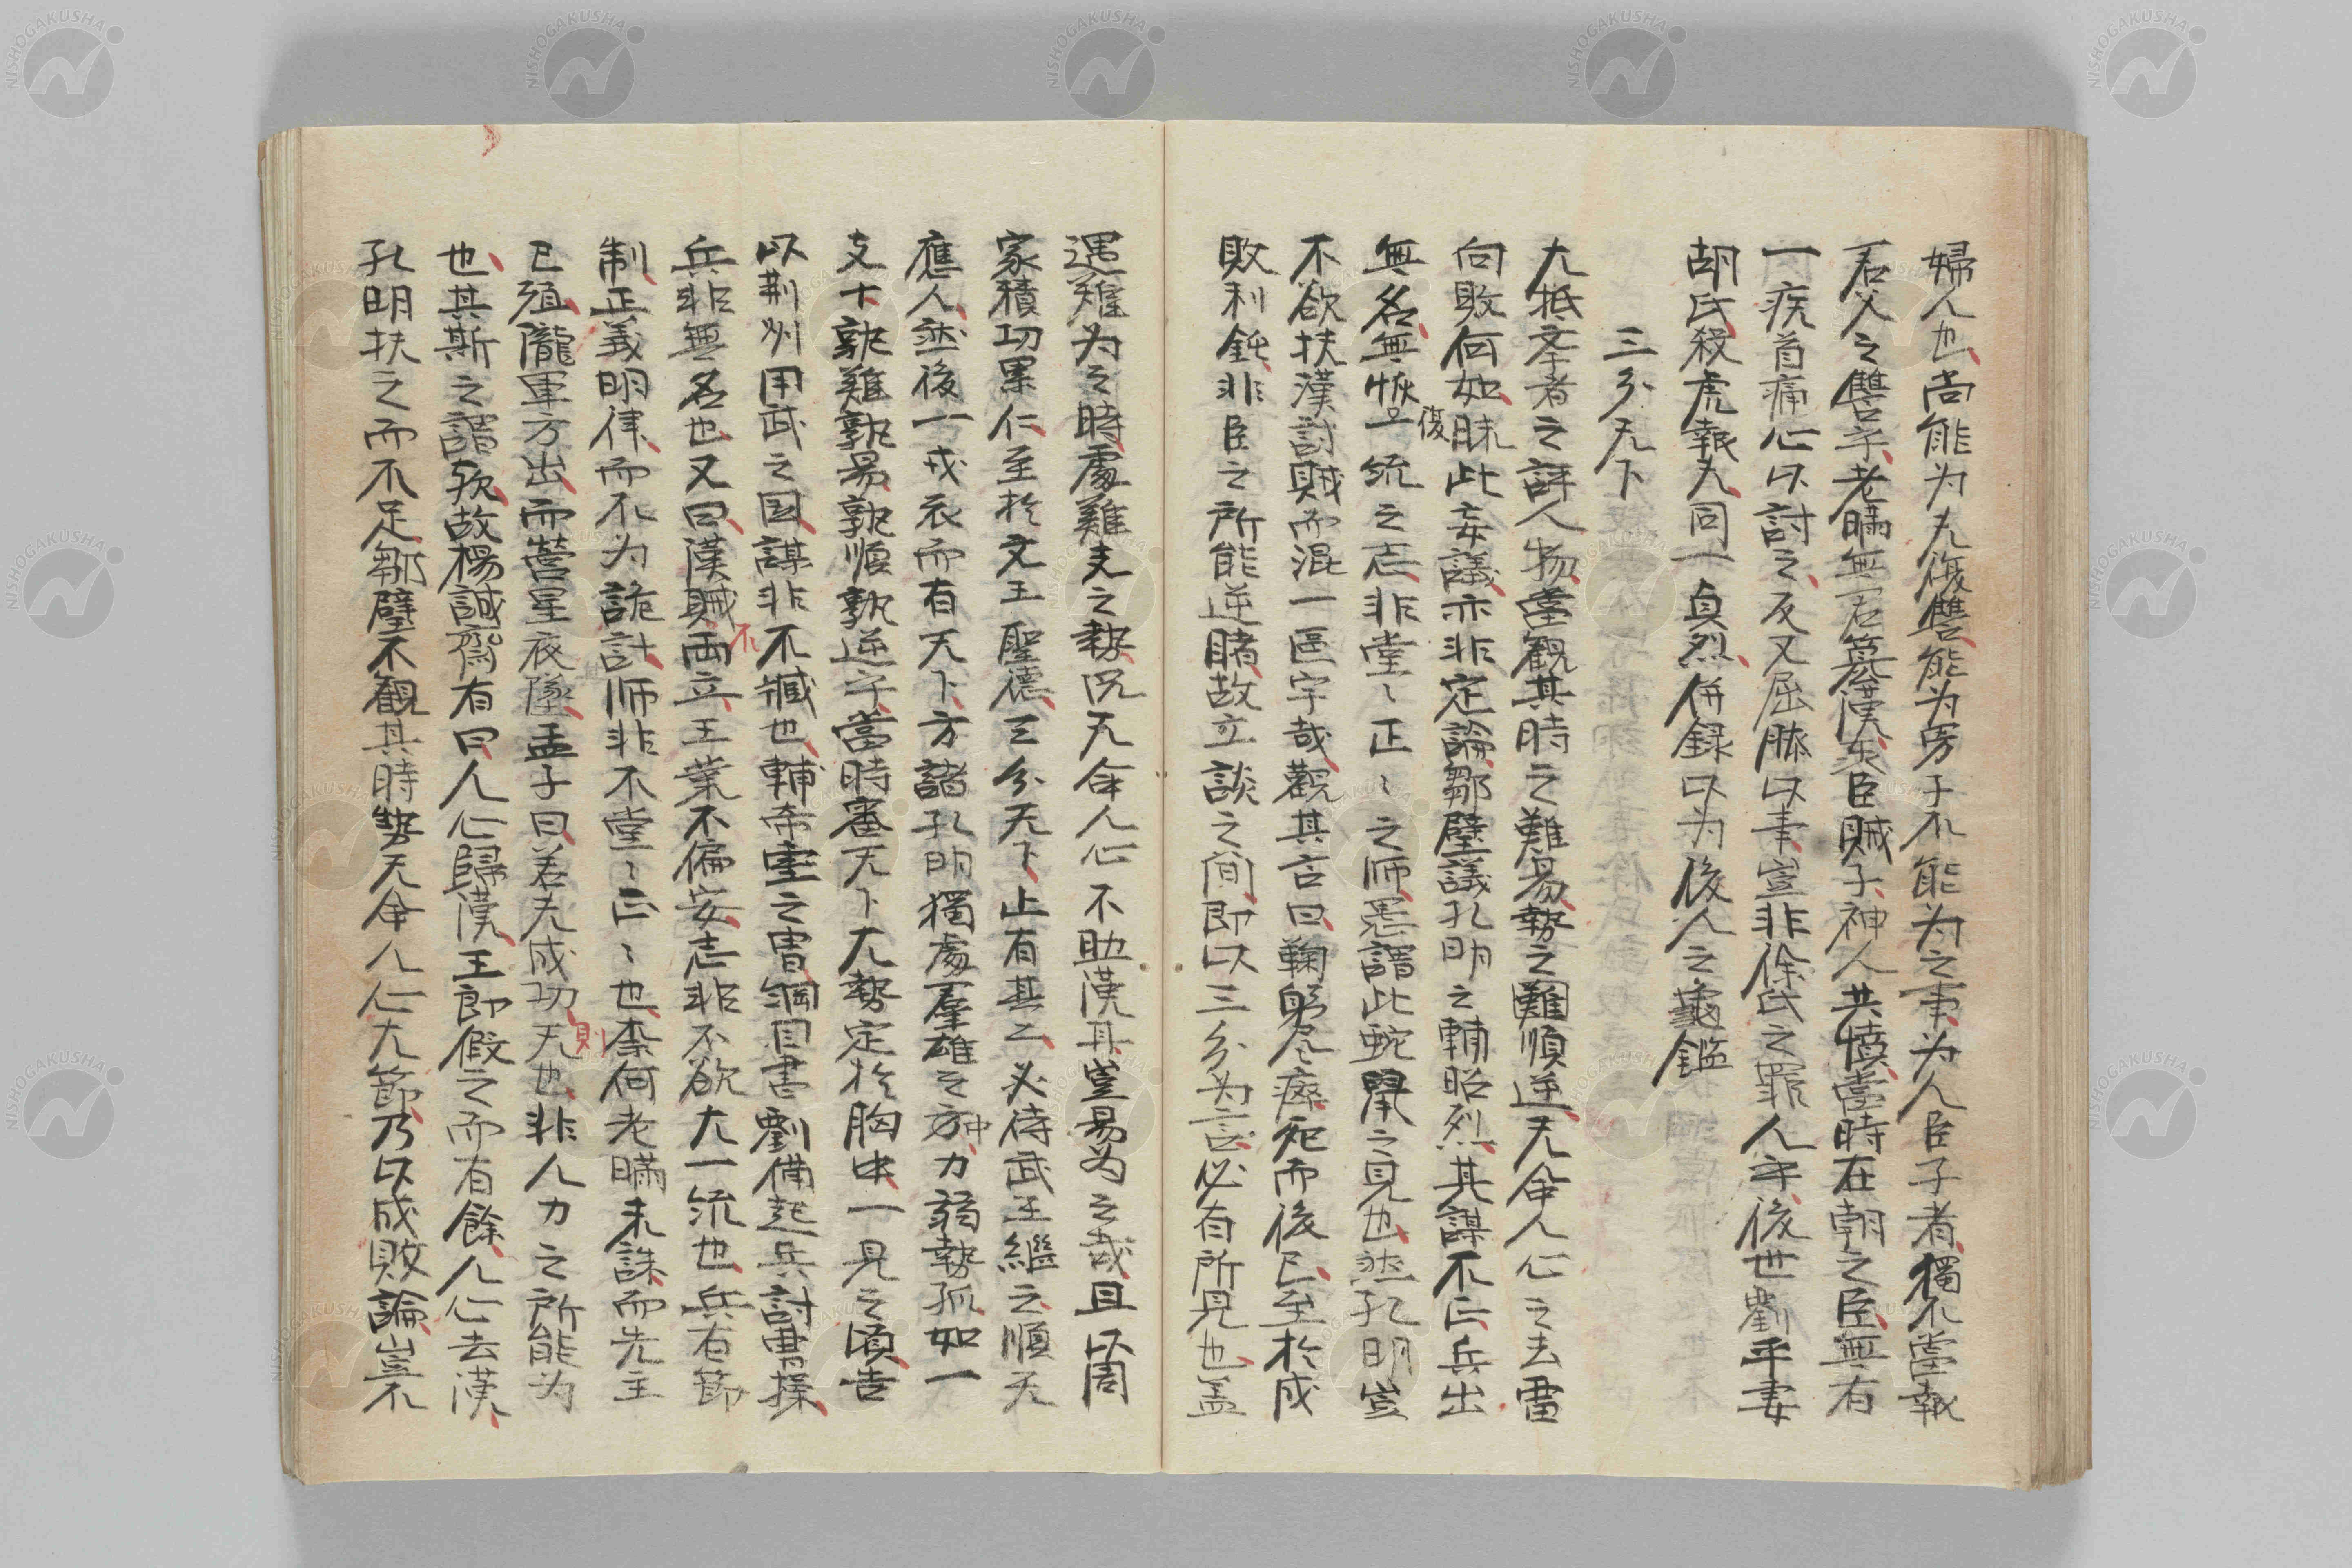 婦人也尚能为夫復讐能为男子不能为之事为人臣子者獨不當報
君父之讐乎老瞞無君簒漢衮臣賊子神人共憤當時在朝之臣無有
一疾首痛心以討之反又屈膝以事豈非徐氏之罪人乎後世劉平妻
胡氏殺虎報夫同一貞烈併録以为後人之龜鑑
三分天下
大抵李者之評人物當觀其時之難易勢之難順逆天命人心之去留
向敗何如眛此妄議亦非定論鄒璧議孔明之輔昭烈其謀不正兵出
無名無恢復一統之志非堂〻正〻之師愚謂此蛇鼠之見也然孔明豈
不欲扶漢討賊而混一區宇哉觀其言曰鞠躬尽瘁死而後已至於成
敗利鈍非臣之所能逆睹故立談之間即以三分为言必有所見也盖
遇難为之時處難支之勢况天命人心不助漢耳豈易为之哉且以周
家積功累仁至於文王聖德三分天下止有其二必待武王繼之順天
應人然後一戎衣而有天下方諸孔明獨處羣雄之中力弱勢孤如一
支十孰難孰易孰順孰逆乎當時審天下大勢定於胸中一見之頃告
以荆州用武之国謀非不臧也輔帝室之冑綱目書劉備起兵討曹操
兵非無名也又曰漢賊不両立王業不偏安志非不欲大一統也兵有節
制正義明律而不为詭計师非不堂〻正〻也柰何老瞞未誅而先主
已殂隴軍方出而營星夜墜孟子曰若夫成功則天也非人力之所能为
也其斯之謂欤故楊誠齋有曰人心歸漢王郎假之而有餘人心去漢
孔明扶之而不足鄒璧不觀其時勢天命人心大節乃以成敗論豈不